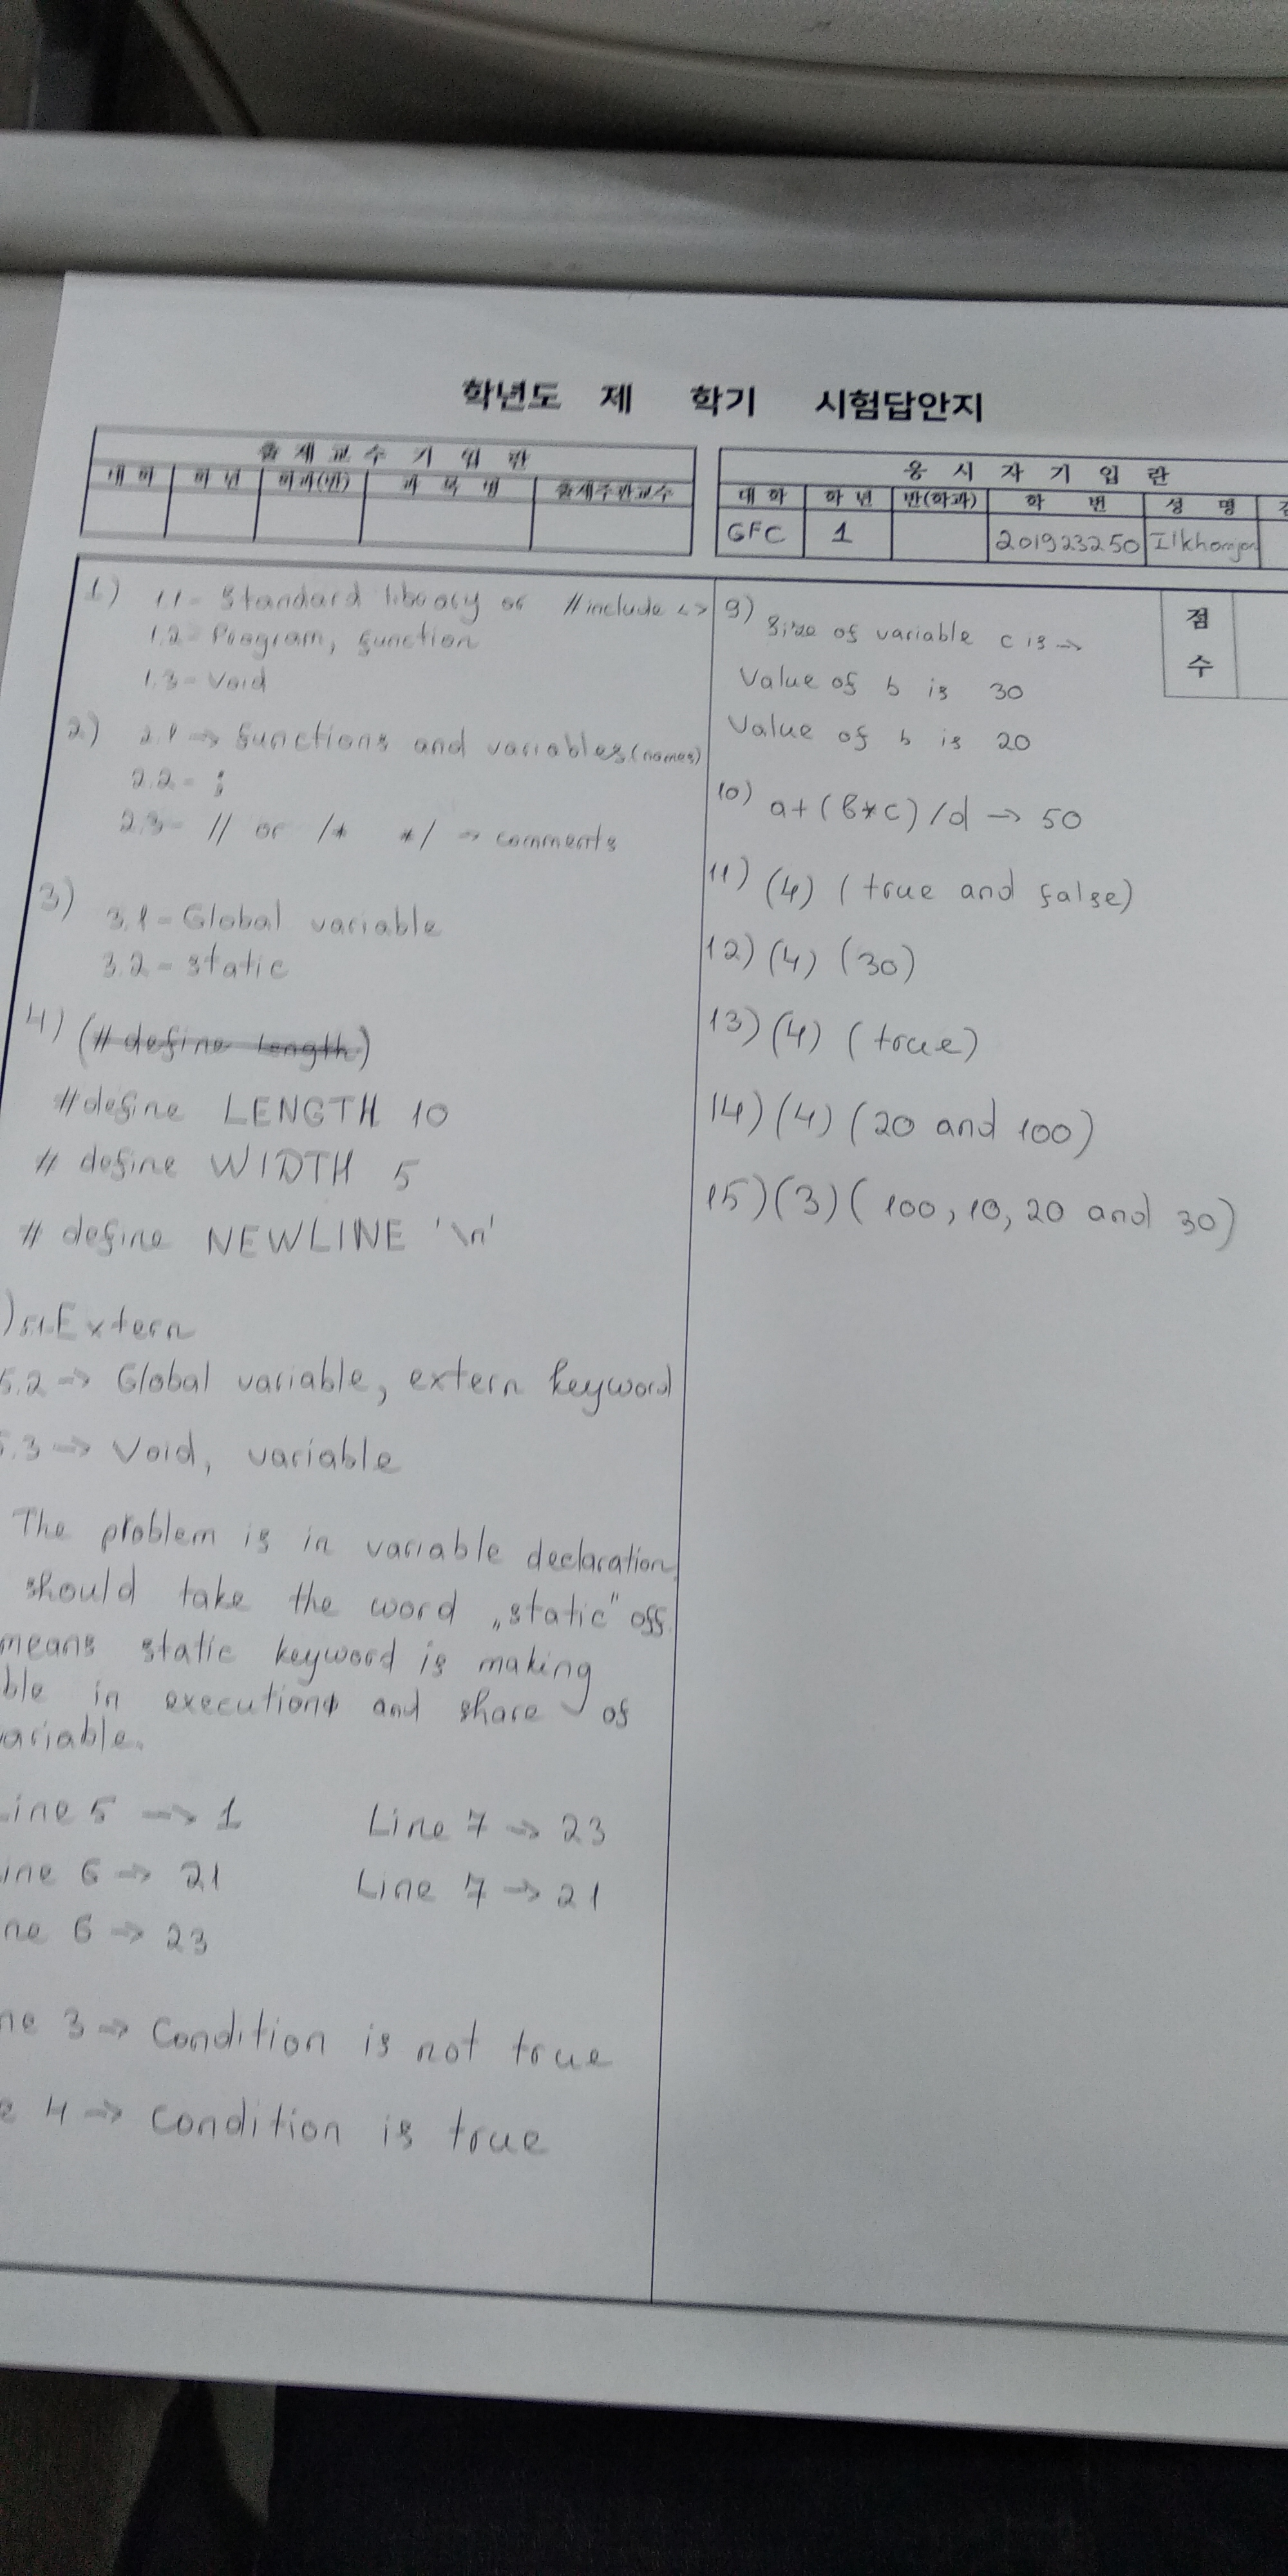 학년도 제 학기 시험답안지
출제교수기입란
대학 학년 학과(반) 과목명 출제주관교수
응시자기입란
대학 학년 반(학과) 학번 성명
GFC 1 201923250 Ilkhomjon
점수
1) 1.1 - Standard library or #include < >
1.2 - Program, function
1.3 - Void
2) 2.1 → functions and variables (names)
2.2 - ;
2.3 - // or /* */ → comments
3) 3.1 - Global variable
3.2 - static
4) (# define length)
#define LENGTH 10
# define WIDTH 5
# define NEWLINE '\n'
) 5.1. Extern
5.2 → Global variable, extern keyword
5.3 → Void, variable
The problem is in variable declaration
should take the word „static" off.
means static keyword is making
ble in execution and share of
ariable.
Line 5 → 1 Line 7 → 23
ine 6 → 21 Line 7 → 21
ne 6 → 23
ne 3 → Condition is not true
e 4 → condition is true
9) Size of variable c is →
Value of b is 30
Value of b is 20
10) a+(b*c)/d → 50
11) (4) (true and false)
12) (4) (30)
13) (4) (true)
14) (4) (20 and 100)
15) (3) (100, 10, 20 and 30)